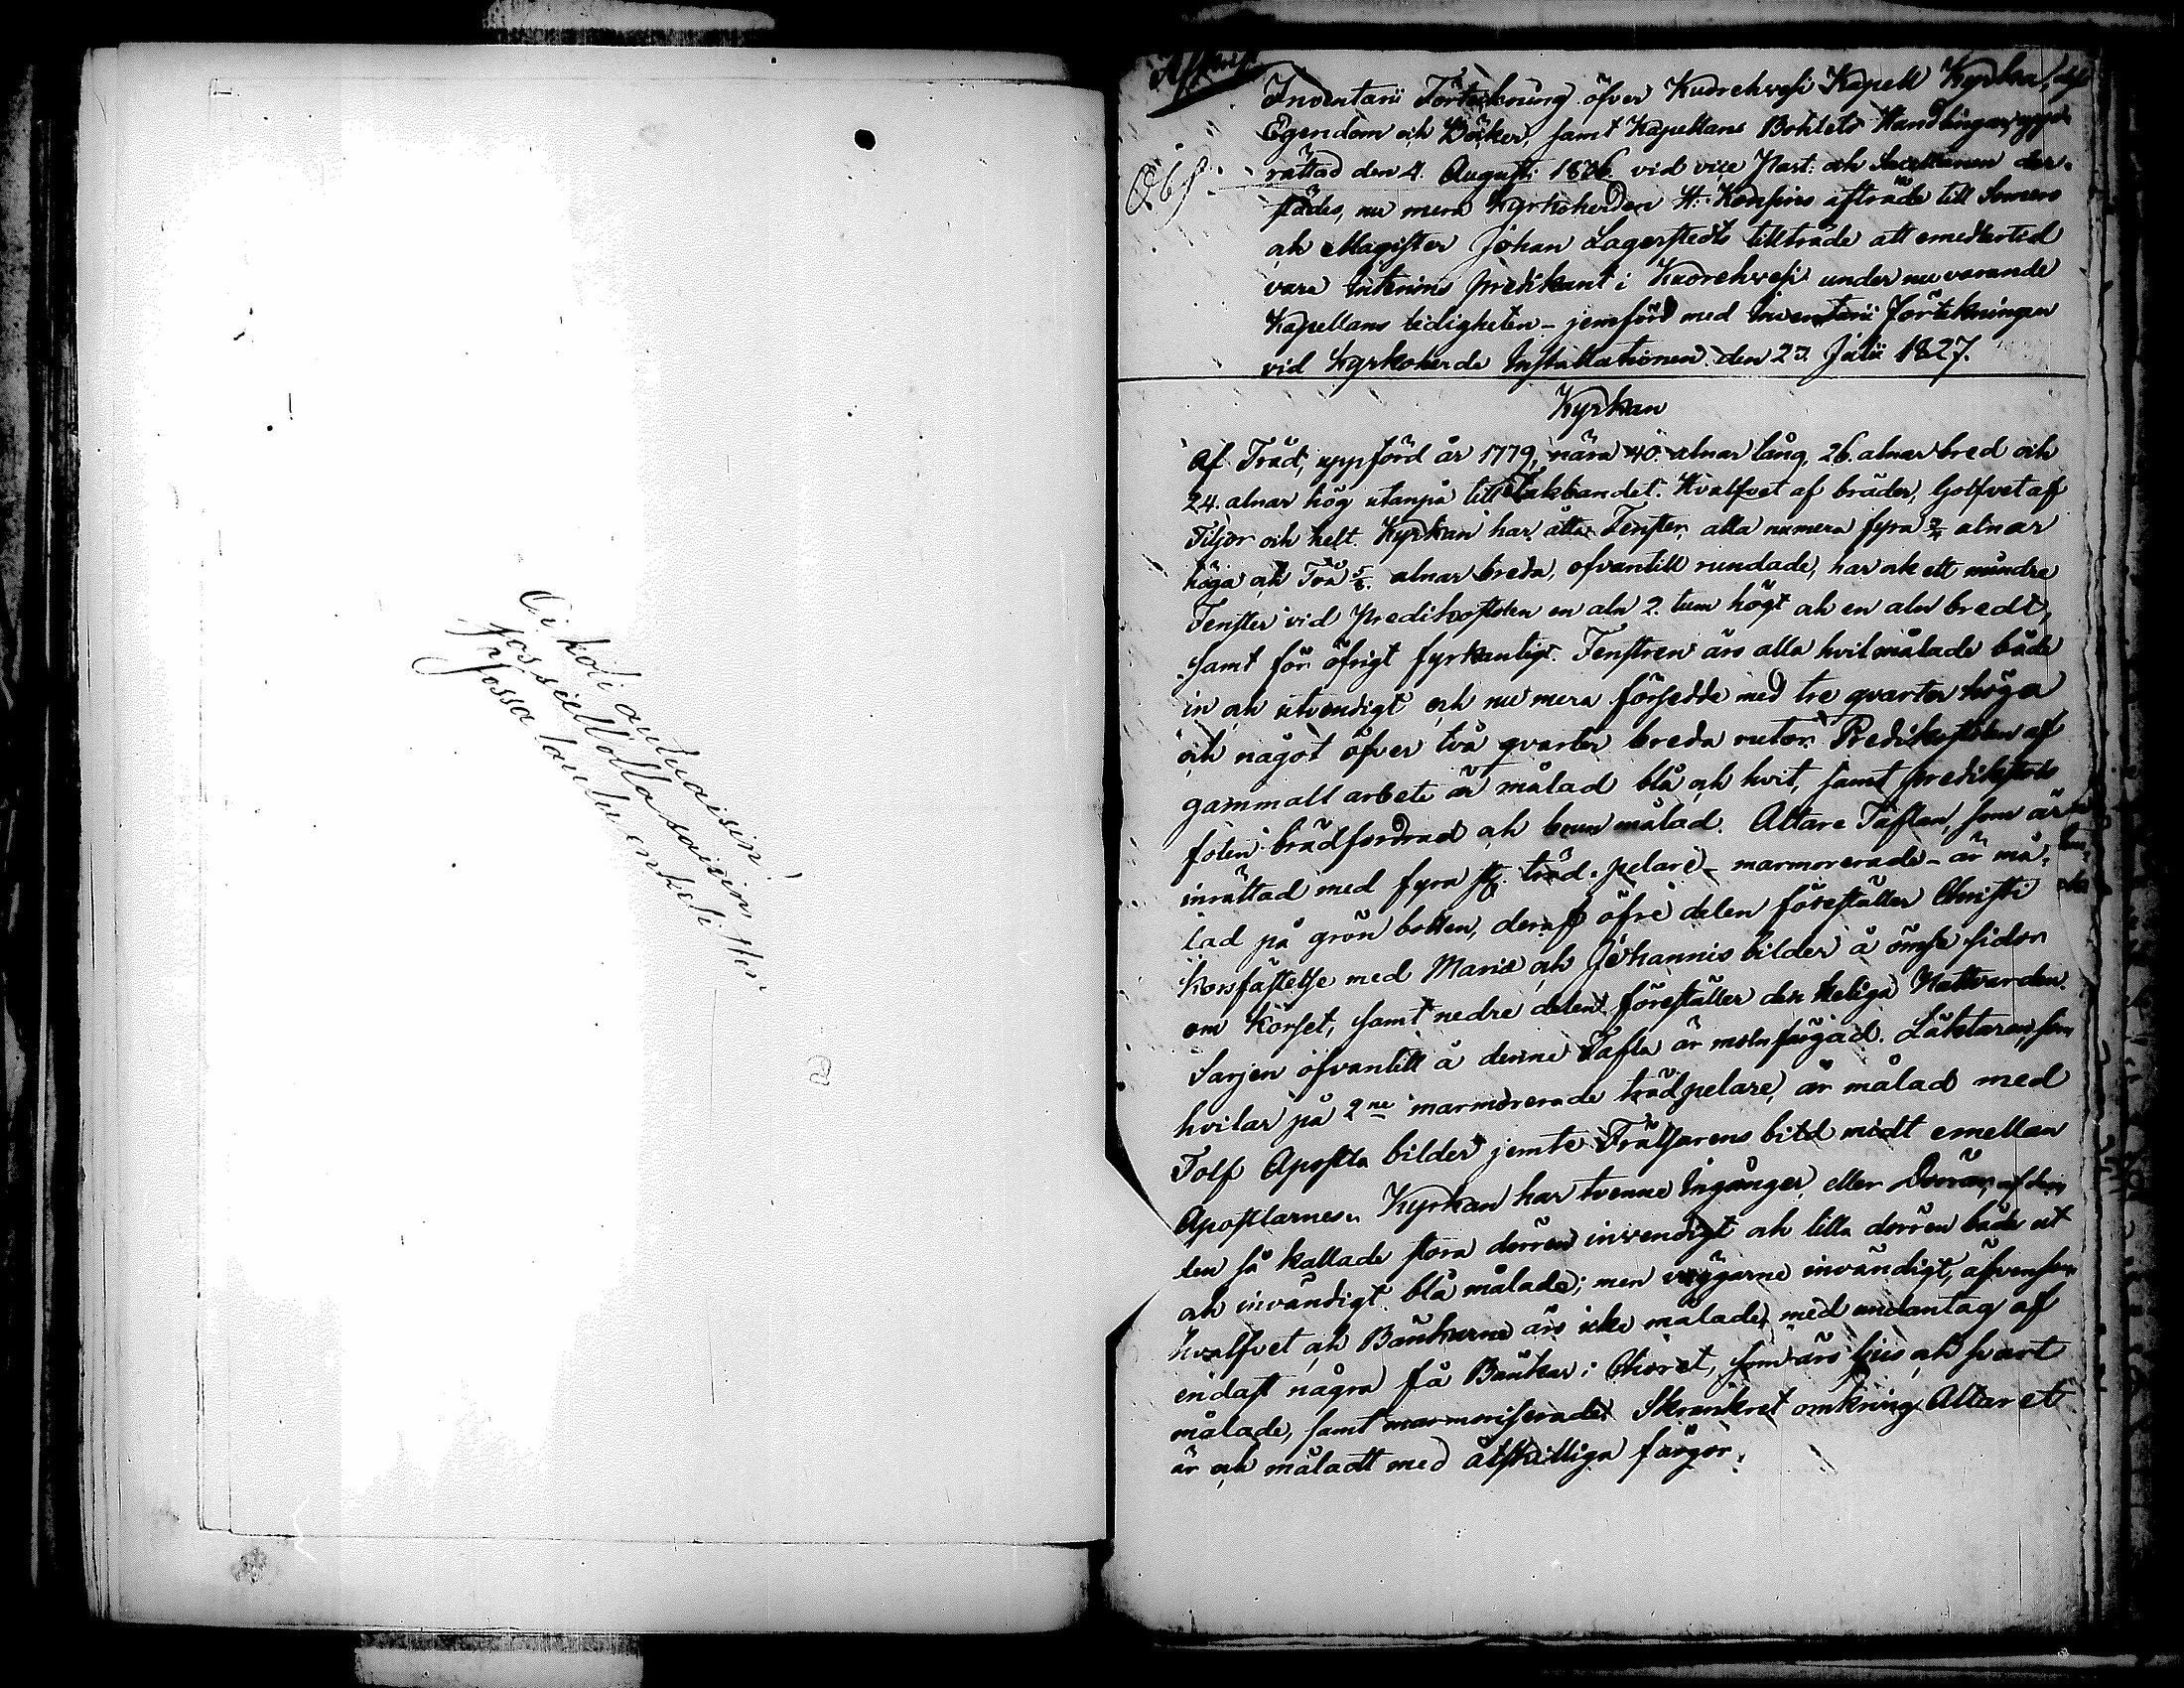 Ei koti autuaisin!
jos siell olla saisin,
Jossa laulu enkeli
Afskrift
Obs:
Inventarii Förtekning öfver Kuorehvesi Kapell Kyrkas
Egendom och Böcker, samt Kapellans Bohlets Handlingar, upp-
rättad den 4. Augusti 1826. vid vice Past. och Sacellanen der-
städes, nu mera Kyrkoherden H. afträde till Somero
och Magister Johan Lagerstedts tillträde att emedlertid
vara Interims predikant i Kuorehvesi under nu varande
Kapellans ledigheten – jemförd med Inventarii Förtekningen
vid Kyrkoherde Installationen den 23. Julii 1827.
Kyrkan
Af Träd, uppförd år 1779, nära 40. alnar lång, 26. alnar bred och
24. alnar hög utanpå till Takbandet. Hvalfvet af bräder, Golfvet af
Tiljor och helt. Kyrkan har åtta Fenster, alla numera fyra 3/4 alnar
höga och Två 5/8. alnar breda, ofvantill rundade, har ock ett mindre
Fenster vid Predikostolen en aln 2. tum högt och en aln bredt,
samt för öfrigt fyrkantigt. Fenstren äro alla hvitmålade både
in och utvendigt och nu mera försedde med tre qvarter höga
och något öfver två qvarter breda rutor. Predikostolen af
gammalt arbete är målad blå och hvit, samt predikstols
foten brädfordrad och brun målad. Altare Taflan, som är
inrättad med fyra st. träd-pelare – marmorerade – är må-
lad på grön botten, deraf öfre delen föreställer Christi
korsfästelse med Mariæ och Johannis bilder å ömse sidor
om Korset, samt nedre delen föreställer den Heliga Nattvarden.
Sarjen ofvantill å denne Tafla är molnfärgad. Läktaren, som
hvilar på 2ne marmorerade trädpelare, är målad med
Tolf Apostla bilder jemte Frälsarens bild midt emellan
Apostlarnes. Kyrkan har tvenne Ingånger eller Dörrar, af dem
den så kallade stora dörren invendigt och lilla dörren både ut
och invändigt blå målade; men väggarne invändigt, äfvensom
hvalfvet och Bänkarne äro icke målade, med undantag af
endast några få Bänkar i Choret, som äro ljus och svart
målade, samt marmoriserade. Skranket omkring Altaret
är ock måladt med åtskilliga färgor.